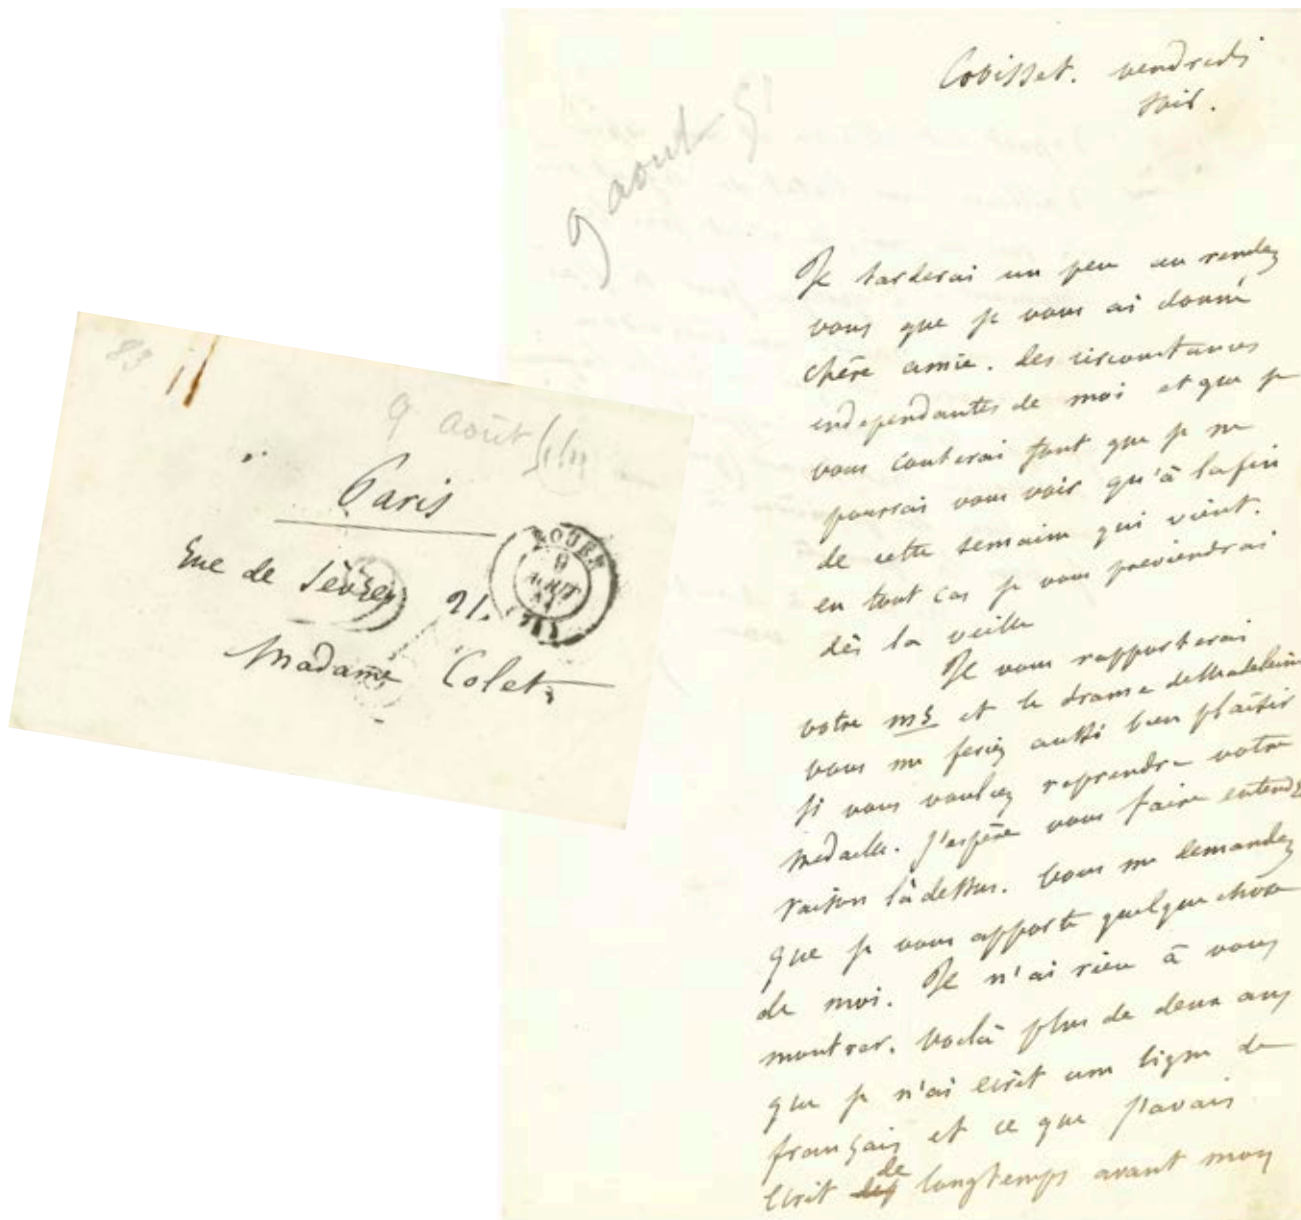 83
9 août
Paris
Rue de Sèvres 21.
Madame Colet
ROUEN
9
AOUT
9 aout 51
Croisset. vendredi
soir.
Je tarderai un peu au rendez
vous que je vous ai donné
chère amie. Des circonstances
independantes de moi et que je
vous conterai font que je ne
pourrai vous voir qu'à la fin
de cette semaine qui vient.
en tout cas je vous previendrai
dès la veille
Je vous rapporterai
votre ms et le drame de Madeleine
vous me feriez aussi bien plaisir
si vous vouliez reprendre votre
medaille. J'espère vous faire entendre
raison là dessus. Vous me demandez
que je vous apporte quelque chose
de moi. Je n'ai rien à vous
montrer. Voilà plus de deux ans
que je n'ai écrit une ligne de
français et ce que j'avais
écrit de longtemps avant mon